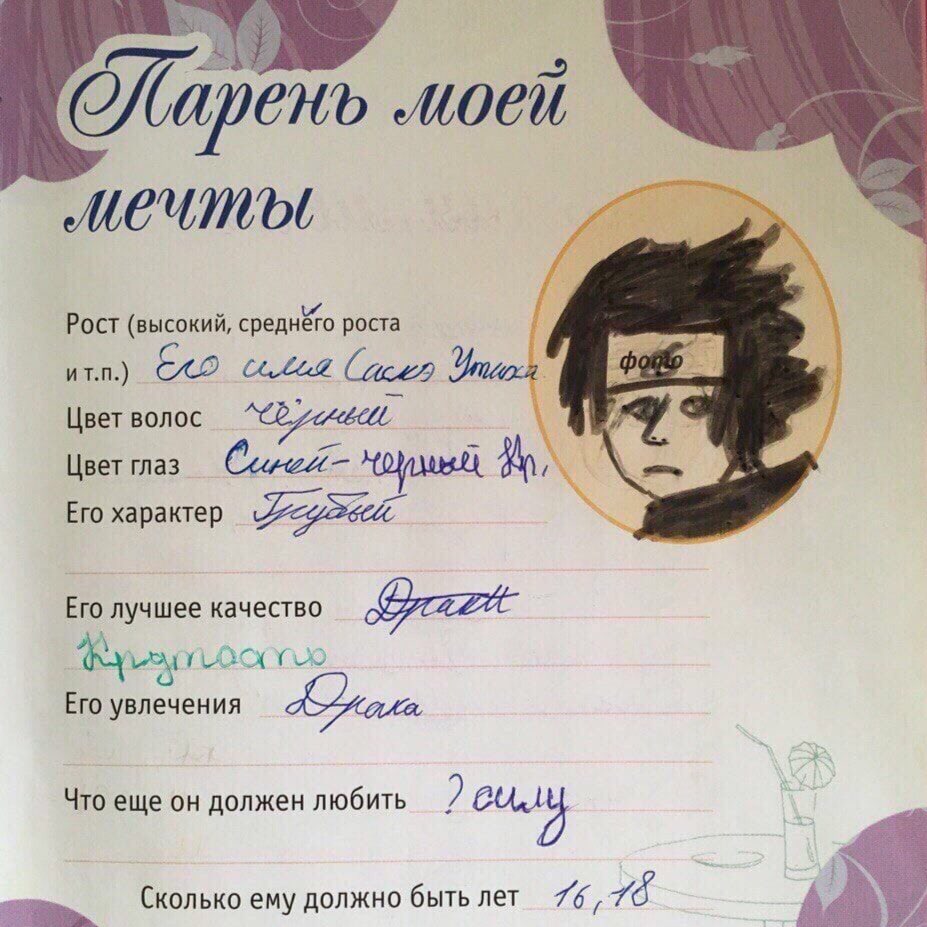 Парень моей
мечты
Рост (высокий, среднего роста
и т.п.) Его имя Саскэ Утиха
фото
Цвет волос Чёрный
Цвет глаз Синей-черный Кр.
Его характер Грубый
Его лучшее качество Драки
Крутость
Его увлечения Драка
Что еще он должен любить ? силу
Сколько ему должно быть лет 16, 18